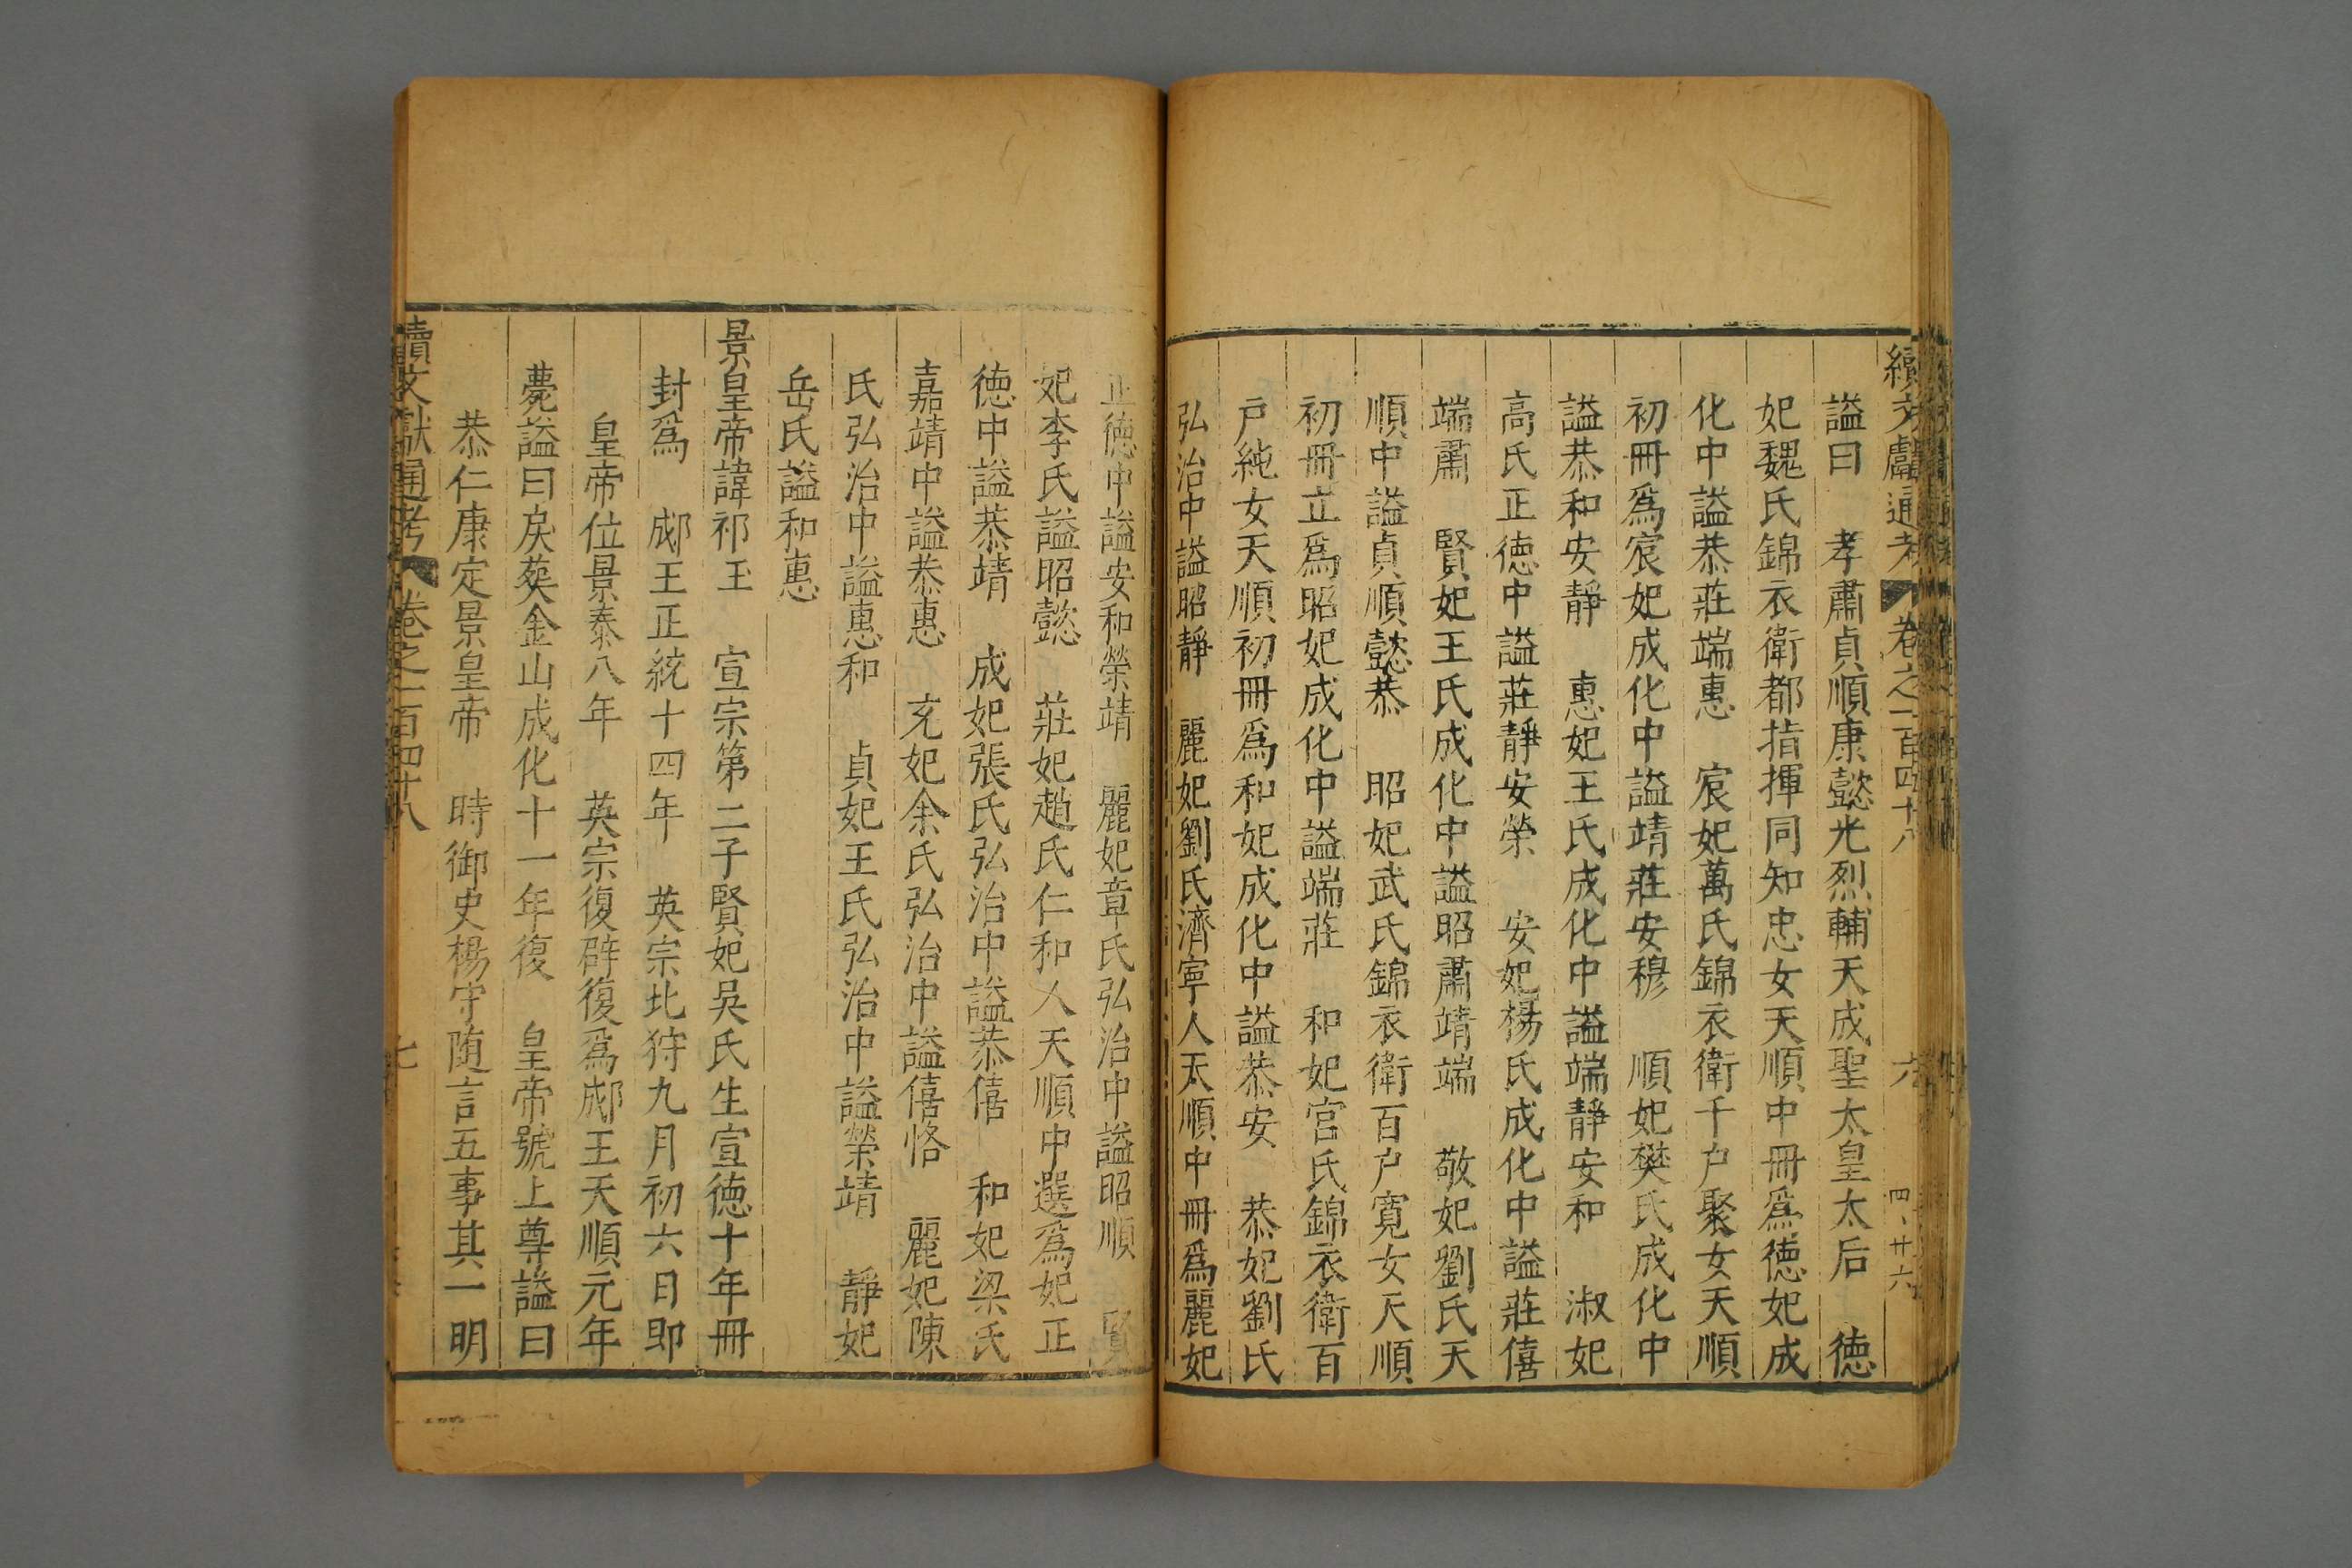 續文獻通考 卷之一百四十八 六 四、廿六
謚曰 孝肅貞順康懿光烈輔天成聖太皇太后 德
妃魏氏錦衣衛都指揮同知忠女天順中冊爲德妃成
化中謚恭莊端惠 宸妃萬氏錦衣衛千户聚女天順
初冊爲宸妃成化中謚靖莊安穆 順妃樊氏成化中
謚恭和安靜 惠妃王氏成化中謚端靜安和 淑妃
高氏正德中謚莊靜安榮 安妃楊氏成化中謚莊僖
端肅 賢妃王氏成化中謚昭肅靖端 敬妃劉氏天
順中謚貞順懿恭 昭妃武氏錦衣衛百户寬女天順
初冊立爲昭妃成化中謚端莊 和妃宮氏錦衣衛百
戶純女天順初冊爲和妃成化中謚恭安 恭妃劉氏
弘治中謚昭靜 麗妃劉氏濟寧人天順中冊爲麗妃
正德中謚安和榮靖 麗妃章氏弘治中謚昭順 賢
妃李氏謚昭懿 莊妃趙氏仁和人天順中選爲妃正
德中謚恭靖 成妃張氏弘治中謚恭僖 和妃梁氏
嘉靖中謚恭惠 充妃余氏弘治中謚僖恪 麗妃陳
氏弘治中謚惠和 貞妃王氏弘治中謚榮靖 靜妃
岳氏謚和惠
景皇帝諱祁玉 宣宗第二子賢妃吳氏生宣德十年冊
封爲 郕王正統十四年 英宗北狩九月初六日即
皇帝位景泰八年 英宗復辟復爲郕王天順元年
薨謚曰戾葬金山成化十一年復 皇帝號上尊謚曰
恭仁康定景皇帝 時御史楊守随言五事其一明
續文獻通考 卷之一百四十八 七